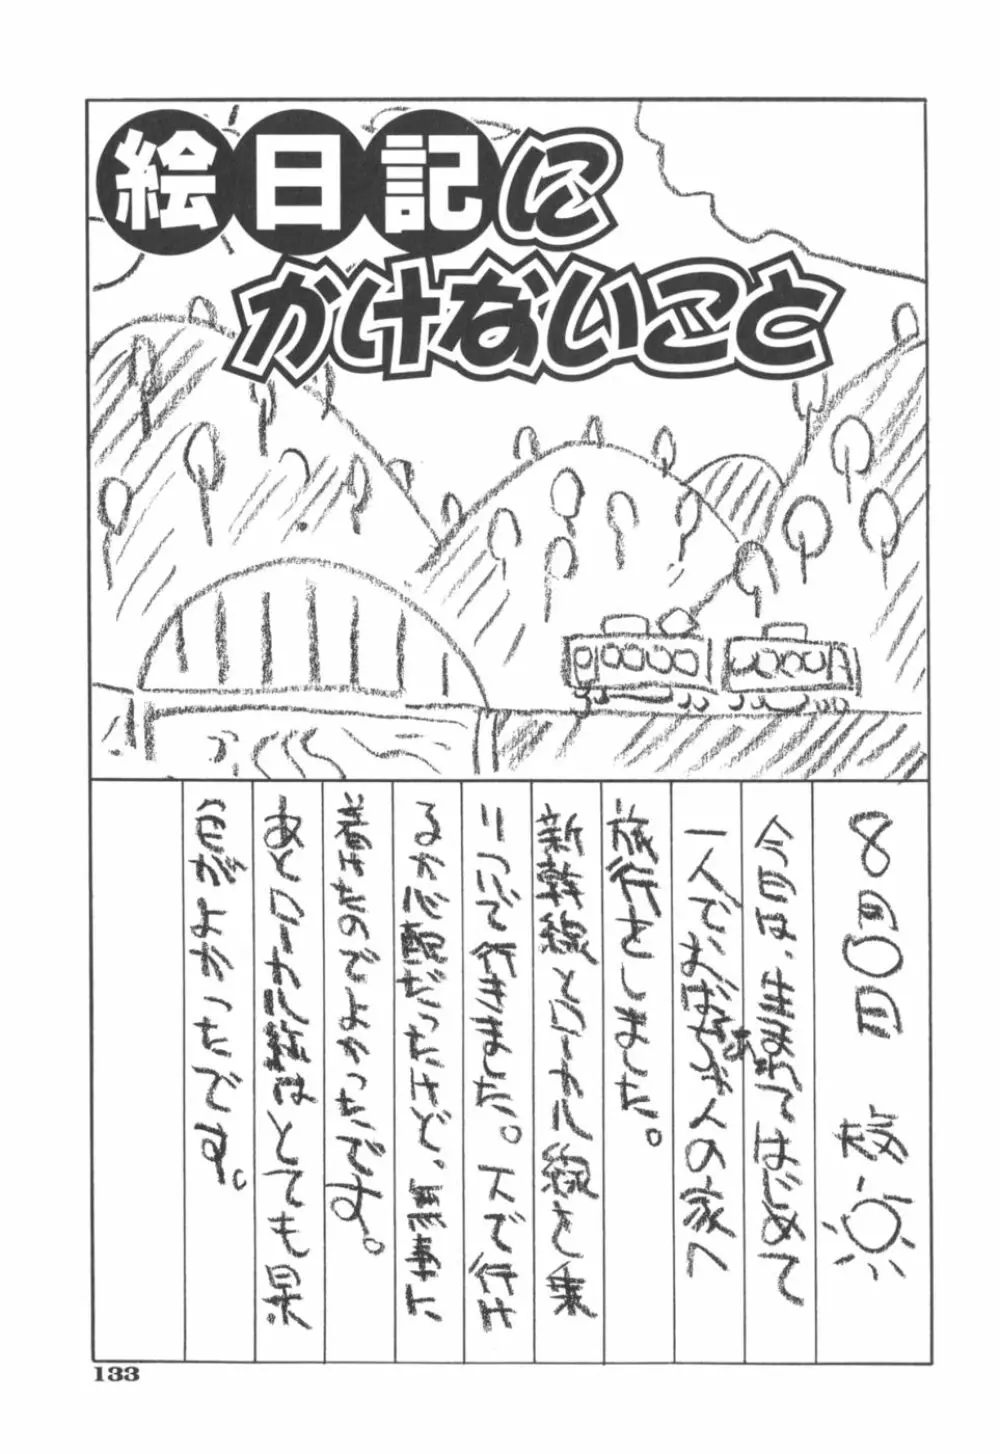 絵日記に
かけないこと
8月〇日
今日は、生まれてはじめて
一人でおばあちゃんの家へ
旅行をしました。
新幹線とローカル線を乗
りついで行きました。一人で行け
るか心配だったけど、無事に
着けたのでよかったです。
あとローカル線はとても景
色がよかったです。
133